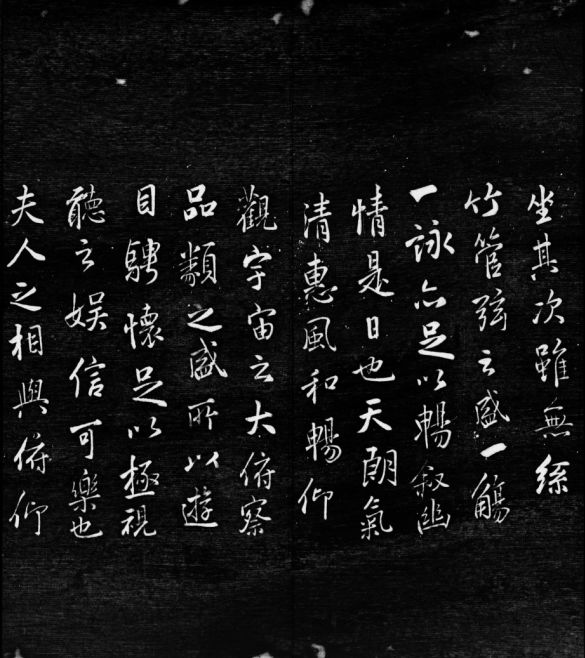 坐其次雖無絲
竹管弦之盛一觴
一詠亦足以暢叙幽
情是日也天朗氣
清惠風和暢仰
觀宇宙之大俯察
品類之盛所以遊
目騁懷足以極視
聽之娛信可樂也
夫人之相與俯仰